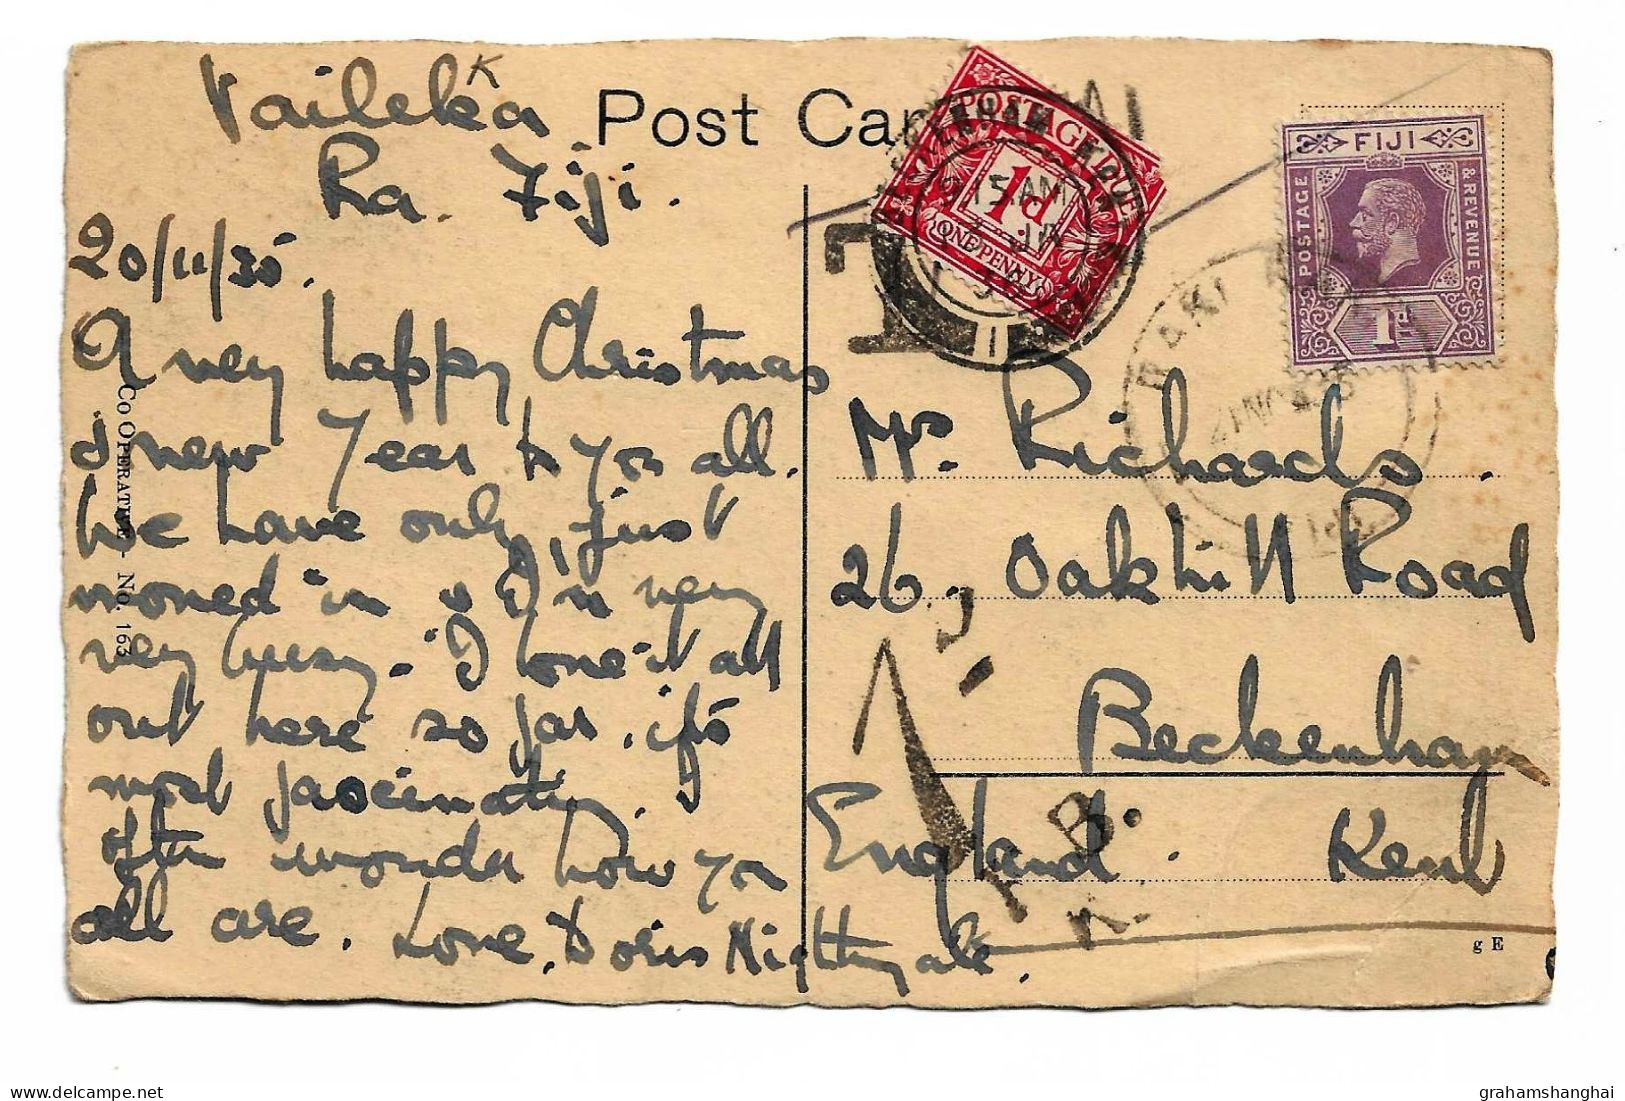 Vaileka
K
Ra. Fiji.
20/11/35.
A very happy Christmas
& new Year to you all.
We have only just
moved in & I'm very
very busy. I love it all
out here so far, it's
most fascinating. I
often wonder how you
all are. Love, Doris Nightingale.
Post Card
Co OPERATIVE - No. 163
POSTAGE DUE
1d
ONE PENNY
BECKENHAM KENT
9 15 AM
1
FIJI
POSTAGE
& REVENUE
1d
RAKI RAKI
21 NOV 35
FIJI
T
Mrs. Richards.
26, Oakhill Road
Beckenham
England. Kent
1D.
F.B.
K.
g E
grahamshanghai